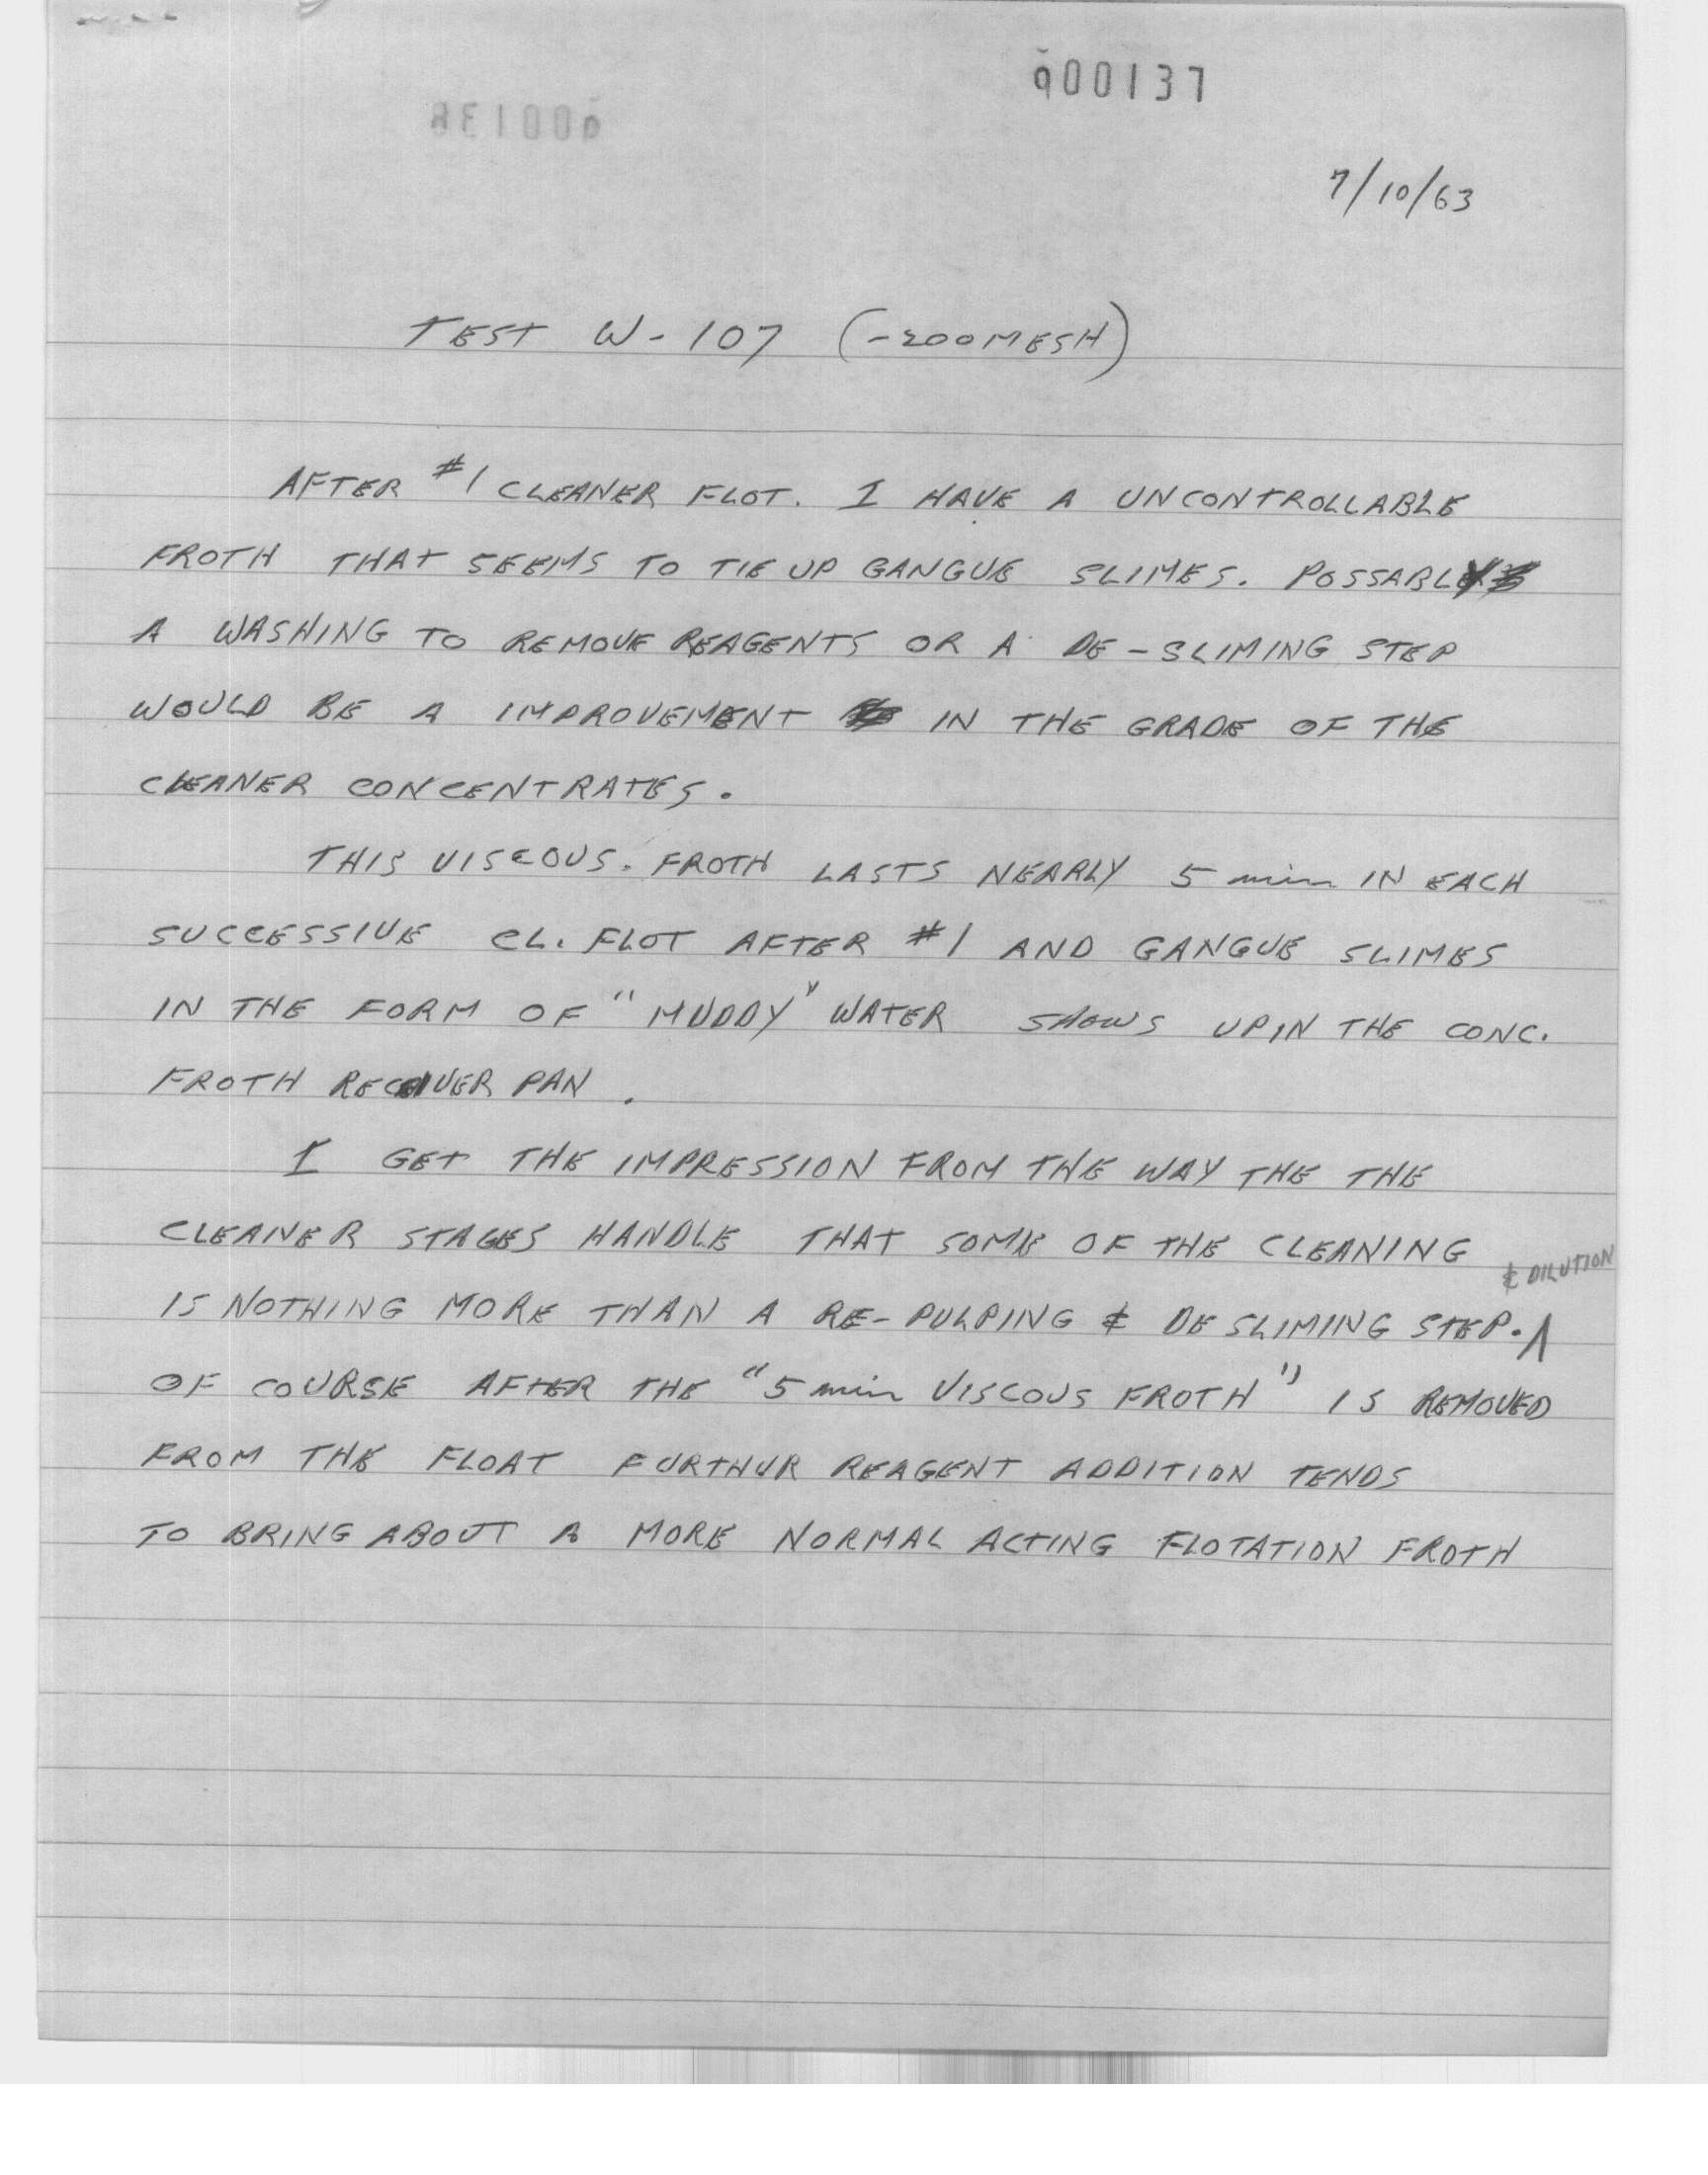 000137
7/10/63
TEST W-107 (-200 MESH)
AFTER #1 CLEANER FLOT. I HAVE A UNCONTROLLABLE
FROTH THAT SEEMS TO TIE UP GANGUE SLIMES. POSSABLY
A WASHING TO REMOVE REAGENTS OR A DE-SLIMING STEP
WOULD BE A IMPROVEMENT IN THE GRADE OF THE
CLEANER CONCENTRATES.
THIS VISCOUS. FROTH LASTS NEARLY 5 min IN EACH
SUCCESSIVE CL. FLOT AFTER #1 AND GANGUE SLIMES
IN THE FORM OF "MUDDY" WATER SHOWS UP IN THE CONC.
FROTH RECEIVER PAN.
I GET THE IMPRESSION FROM THE WAY THE THE
CLEANER STAGES HANDLE THAT SOME OF THE CLEANING
& DILUTION
IS NOTHING MORE THAN A RE-PULPING & DESLIMING STEP.
OF COURSE AFTER THE "5 min VISCOUS FROTH" IS REMOVED
FROM THE FLOAT FURTHUR REAGENT ADDITION TENDS
TO BRING ABOUT A MORE NORMAL ACTING FLOTATION FROTH